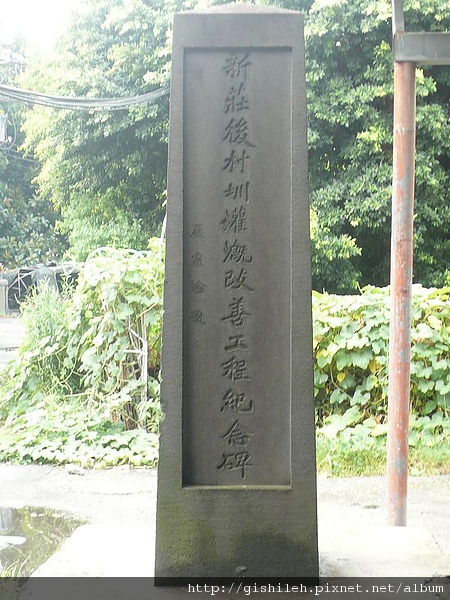 新莊後村圳灌溉改善工程紀念碑
http://gishileh.pixnet.net/album